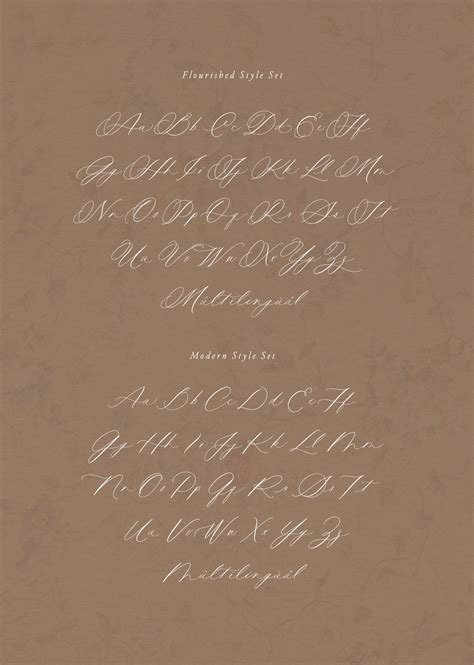 Flourished Style Set
Aa Bb Cc Dd Ee Ff
Gg Hh Ii Jj Kk Ll Mm
Nn Oo Pp Qq Rr Ss Tt
Uu Vv Ww Xx Yy Zz
Múltilingüâl
Modern Style Set
Aa Bb Cc Dd Ee Ff
Gg Hh Ii Jj Kk Ll Mm
Nn Oo Pp Qq Rr Ss Tt
Uu Vv Ww Xx Yy Zz
Múltilingüâl